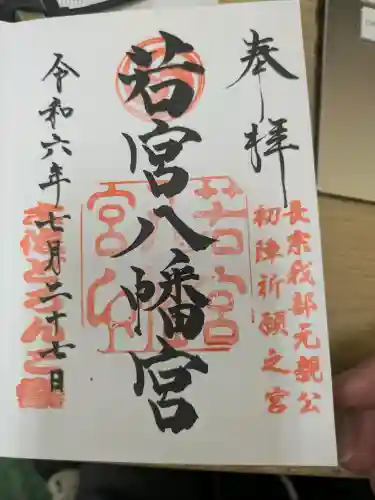 奉拝
長宗我部元親公
初陣祈願之宮
若宮八幡宮
若宮
令和六年七月二十七日